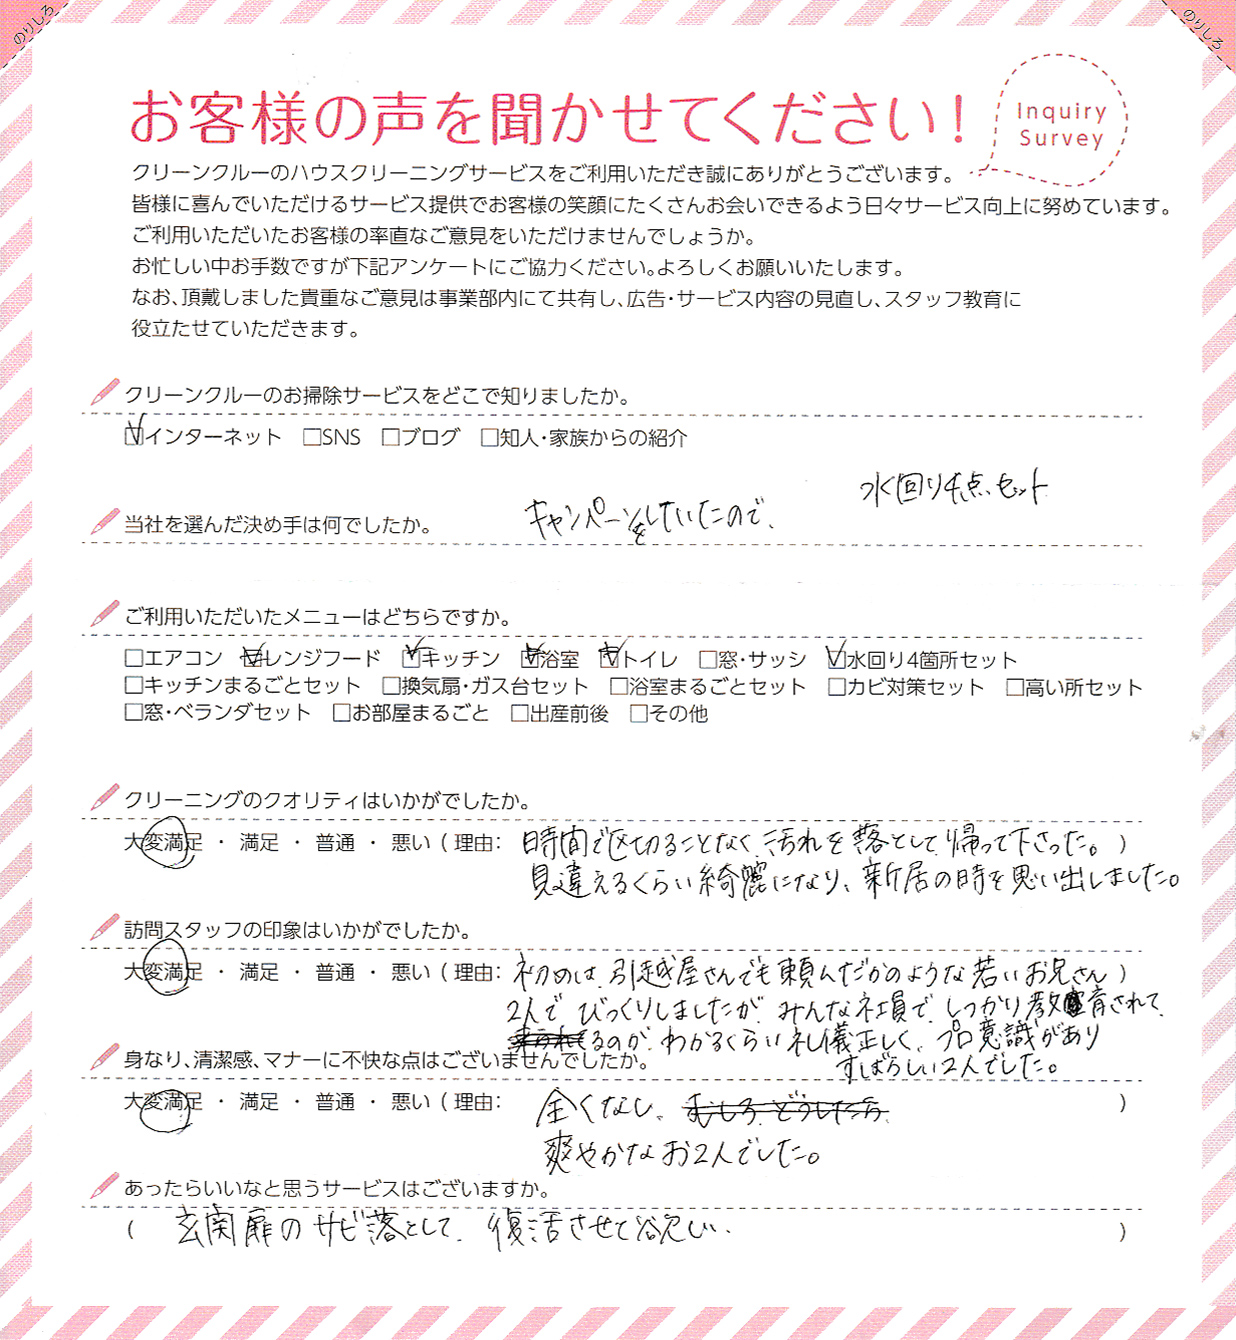 のりしろ
のりしろ
お客様の声を聞かせてください！
Inquiry
Survey
クリーンクルーのハウスクリーニングサービスをご利用いただき誠にありがとうございます。
皆様に喜んでいただけるサービス提供でお客様の笑顔にたくさんお会いできるよう日々サービス向上に努めています。
ご利用いただいたお客様の率直なご意見をいただけませんでしょうか。
お忙しい中お手数ですが下記アンケートにご協力ください。よろしくお願いいたします。
なお、頂戴しました貴重なご意見は事業部内にて共有し、広告・サービス内容の見直し、スタッフ教育に
役立たせていただきます。
クリーンクルーのお掃除サービスをどこで知りましたか。
☑インターネット □SNS □ブログ □知人・家族からの紹介
水回り4点セット
当社を選んだ決め手は何でしたか。 キャンペーンをしていたので、
ご利用いただいたメニューはどちらですか。
□エアコン ☑レンジフード ☑キッチン ☑浴室 ☑トイレ □窓・サッシ ☑水回り4箇所セット
□キッチンまるごとセット □換気扇・ガス台セット □浴室まるごとセット □カビ対策セット □高い所セット
□窓・ベランダセット □お部屋まるごと □出産前後 □その他
クリーニングのクオリティはいかがでしたか。
大変満足 ・ 満足 ・ 普通 ・ 悪い ( 理由: 時間で区切ることなく、汚れを落として帰って下さった。 )
見違えるくらい綺麗になり、新居の時を思い出しました。
訪問スタッフの印象はいかがでしたか。
大変満足 ・ 満足 ・ 普通 ・ 悪い ( 理由: 初めは、引越屋さんでも頼んだかのような若いお兄さん )
2人でびっくりしましたが、みんな社員で、しっかり教育されて
るのが、わかるくらい礼儀正しく、プロ意識があり
すばらしい2人でした。
身なり、清潔感、マナーに不快な点はございませんでしたか。
大変満足 ・ 満足 ・ 普通 ・ 悪い ( 理由: 全くなし、むしろどうしたら )
爽やかなお2人でした。
あったらいいなと思うサービスはございますか。
( 玄関扉のサビ落として、復活させて欲しい、 )